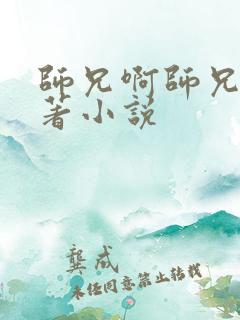 師兄啊師兄
著小說
龔成
未经同意禁止转载